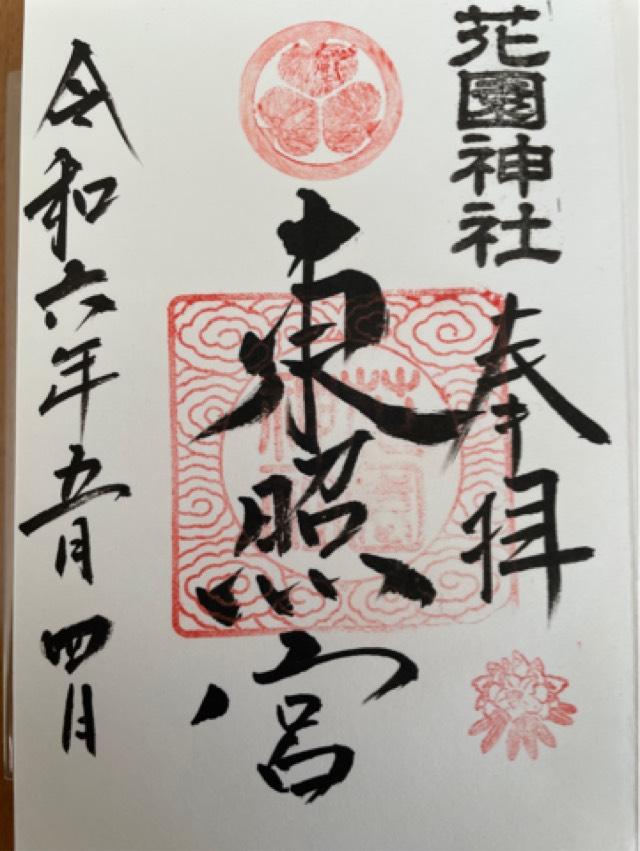 花園神社
奉拝
東照宮
花園
神社
令和六年五月四日